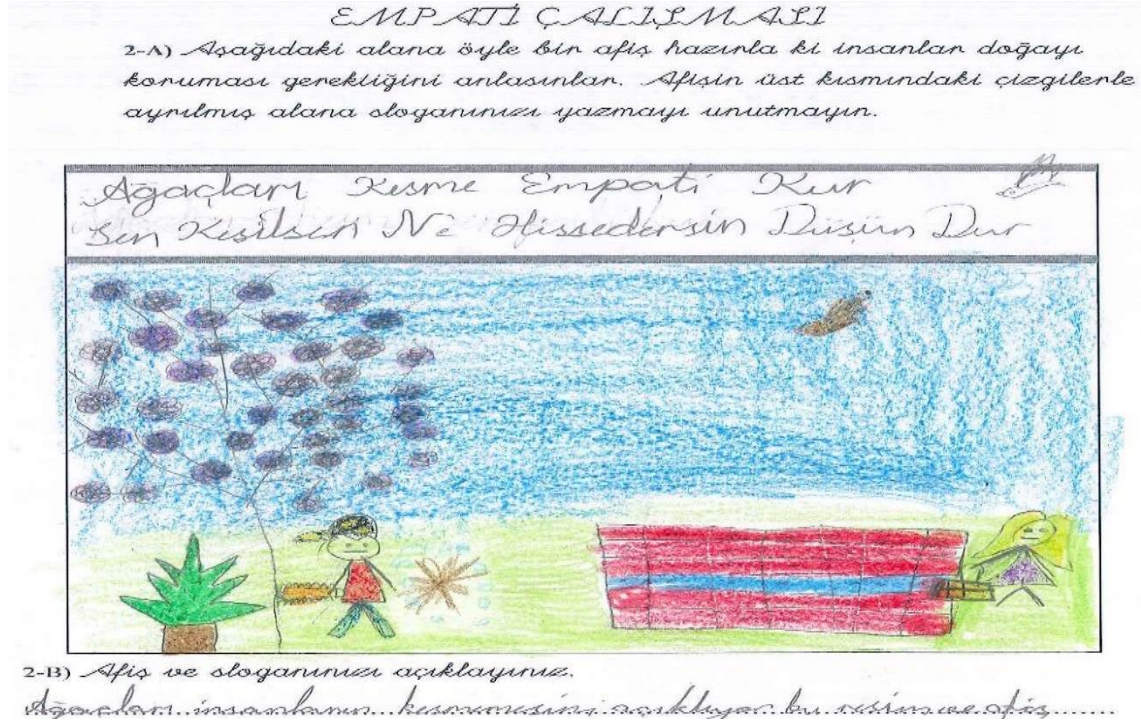 EMPATİ ÇALIŞMASI
2-A) Aşağıdaki alana öyle bir afiş hazırla ki insanlar doğayı
koruması gerekliğini anlasınlar. Afişin üst kısmındaki çizgilerle
ayrılmış alana sloganınızı yazmayı unutmayın.
Ağaçları Kesme Empati Kur
Sen Kesilsen Ne Hissedersin Düşün Dur
2-B) Afiş ve sloganınızı açıklayınız.
Ağaçları insanların kesmemesini açıklıyor bu resim ve afiş